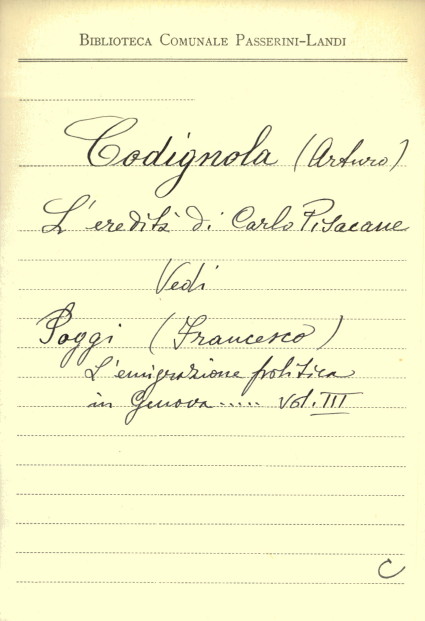 BIBLIOTECA COMUNALE PASSERINI-LANDI
Codignola (Arturo)
L'eredità di Carlo Pisacane
Vedi
Poggi (Francesco)
L'emigrazione politica
in Genova ..... vol. III
C